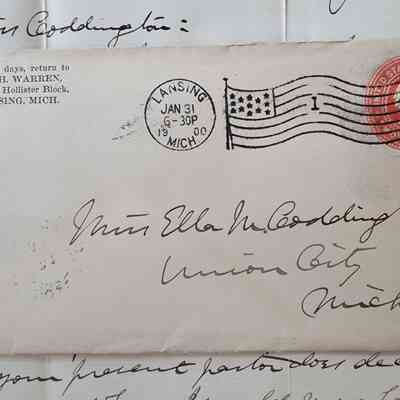 Coddington:
days, return to
H. WARREN,
Hollister Block,
SING, MICH.
LANSING
JAN 31
6-30P
1900
MICH.
1
UNITED STATES
Miss Ella M. Codding
Union City
Mich
your present pastor does dec